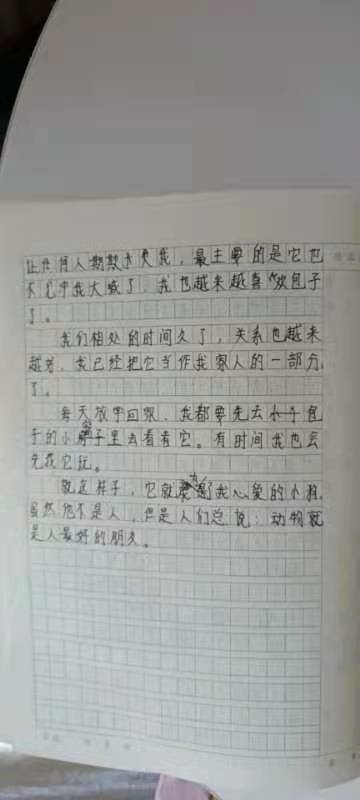 让任何人期欺负我，最主要的是它也
不见中我大喊了，我也越来越喜欢包子
了。
我们相处的时间久了，关系也越来
越好，我已经把它当作我家人的一部分
了。
每天放学回家，我都要先去包
子的小房子里去看看它。有时间我也会
先找它玩。
就这样子，它就成了我心爱的小狗，
虽然他不是人，但是人们总说：动物就
是人最好的朋友。